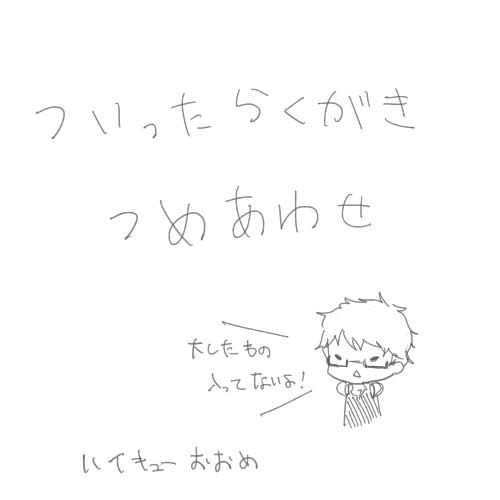 ついったらくがき
つめあわせ
大したもの
入ってないよ!
ハイキューおおめ